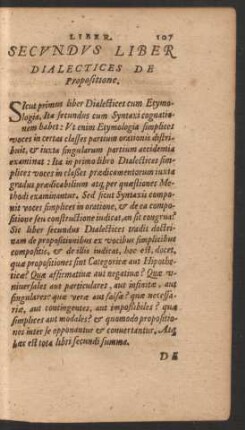 LIBER. 107
SECVNDVS LIBER
DIALECTICES DE
Propositione.
SIcut primus liber Dialectices cum Etymo-
logia, Ita secundus cum Syntaxi cognatio-
nem habet: Vt enim Etymologia simplices
voces in certas classes partium orationis distri-
buit, & iuxta singularum partium accidentia
examinat: Ita in primo libro Dialectices sim-
plices voces in classes prædicamentorum iuxta
gradus prædicabilium atq; per quæstiones Me-
thodi examinantur. Sed sicut Syntaxis compo-
nit voces simplices in oratione, & de ea compo-
sitione seu constructione iudicat, an sit congrua?
Sic liber secundus Dialectices tradit doctri-
nam de propositionibus ex vocibus simplicibus
compositis, & de illis iudicat, hoc est, docet,
quæ propositiones sint Categoricæ aut Hypothe-
ticæ? Quæ affirmatiuæ aut negatiuæ? Quæ v-
niuersales aut particulares, aut infinitæ, aut
singulares? quæ veræ aut falsæ? quæ necessa-
riæ, aut contingentes, aut impossibiles? quæ
simplices aut modales? & quomodo propositio-
nes inter se opponantur & conuertantur. Atq;
hæc est tota libri secundi summa.
DE